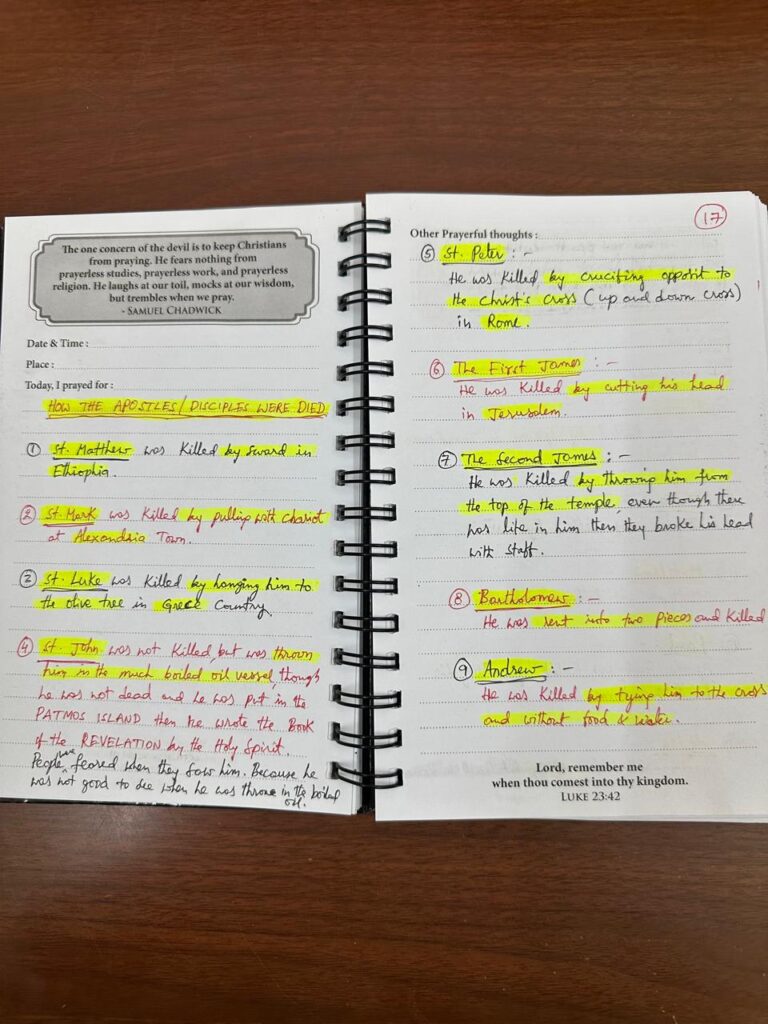 The one concern of the devil is to keep Christians
from praying. He fears nothing from
prayerless studies, prayerless work, and prayerless
religion. He laughs at our toil, mocks at our wisdom,
but trembles when we pray.
- SAMUEL CHADWICK
Date & Time :
Place :
Today, I prayed for :
HOW THE APOSTLES/DISCIPLES WERE DIED
① St. Matthew was Killed by sward in
Ethiophia.
② St. Mark was Killed by pulling with chariot
at Alexandria Town.
③ St. Luke was Killed by hanging him to
the olive tree in Grece Country.
④ St. John was not Killed, but was thrown
him in the much boiled oil vessel, though
he was not dead and he was put in the
PATMOS ISLAND then he wrote the Book
of the REVELATION by the Holy Spirit.
People were feared when they saw him. Because he
was not good to see when he was throne in the boiled
oil.
17
Other Prayerful thoughts :
⑤ St. Peter : -
He was Killed by crucifing opposit to
the christ's cross (up and down cross)
in Rome.
⑥ The First James : -
He was Killed by cutting his head
in Jerusalem.
⑦ The Second James : -
He was Killed by throwing him from
the top of the temple, even though there
was life in him then they broke his head
with staff.
⑧ Bartholomew : -
He was rent into two pieces and Killed
⑨ Andrew : -
He was Killed by trying him to the cross
and without food & water.
Lord, remember me
when thou comest into thy kingdom.
LUKE 23:42